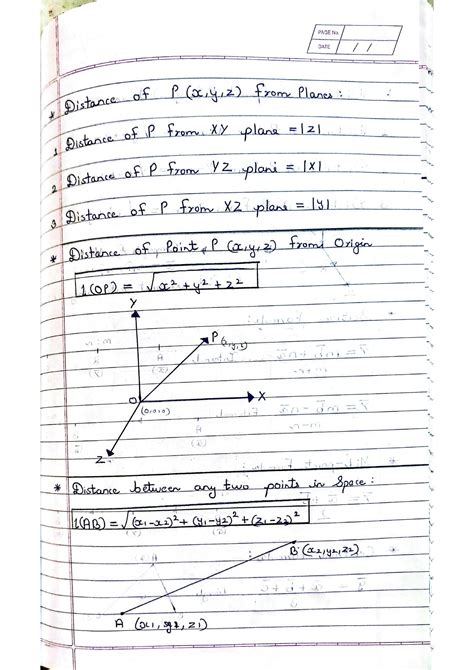 PAGE No.
DATE / /
* Distance of P (x,y,z) from Planes:
1. Distance of P from XY plane = |z|
2. Distance of P from YZ plane = |x|
3. Distance of P from XZ plane = |y|
* Distance of Point P (x,y,z) from Origin
l(OP) = √x² + y² + z²
Y
P (x,y,z)
O
(0,0,0)
X
Z
* Distance between any two points in Space:
l(AB) = √(x1-x2)² + (y1-y2)² + (z1-z2)²
B (x2,y2,z2)
A (x1,y1,z1)